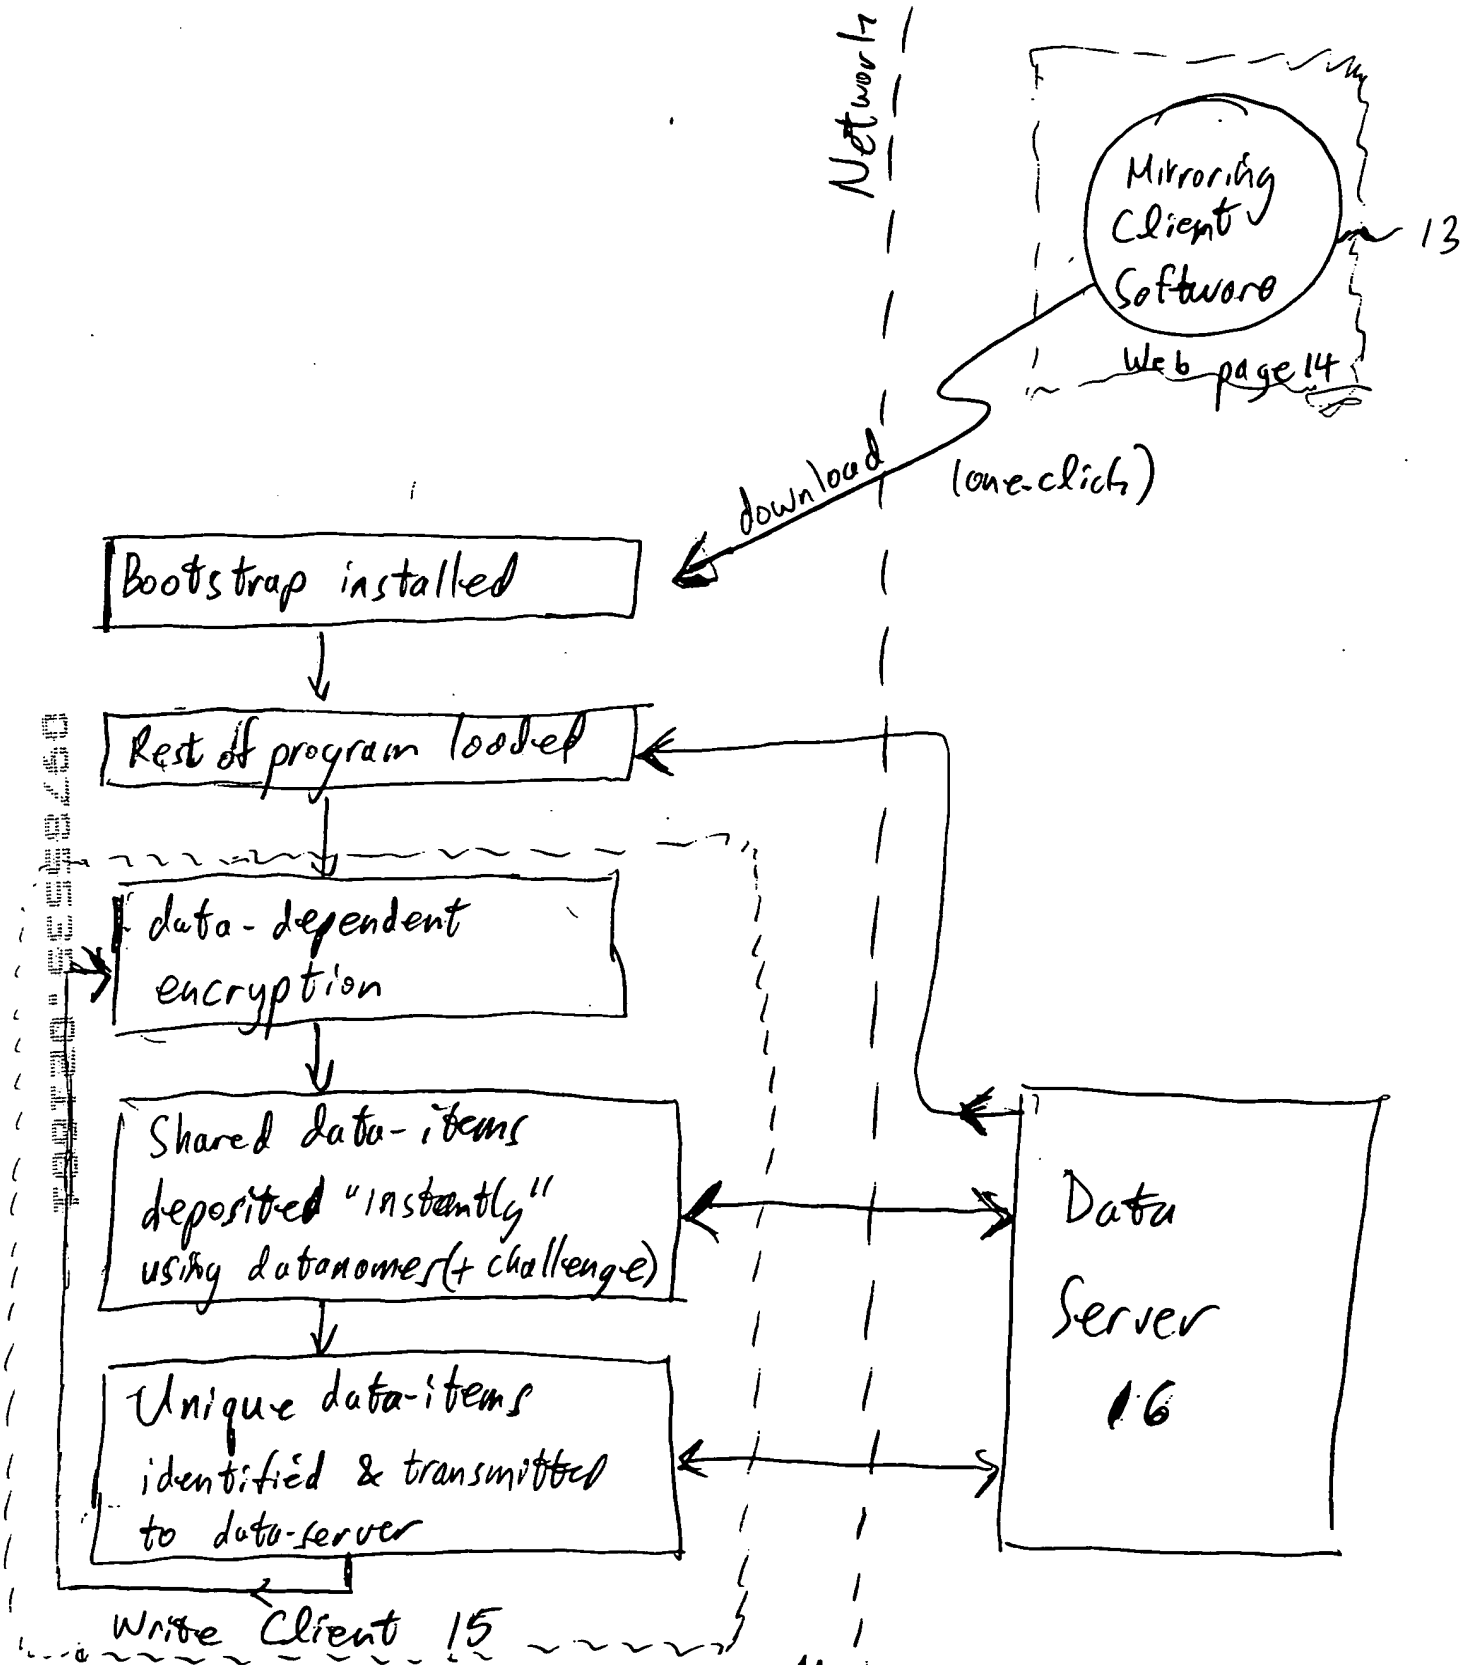 Network
Mirroring
Client
Software
13
Web page 14
download
(one-click)
Bootstrap installed
Rest of program loaded
data-dependent
encryption
Shared data-items
deposited "instantly"
using datanames (+ challenge)
Unique data-items
identified & transmitted
to data-server
Write Client 15
Data
Server
16